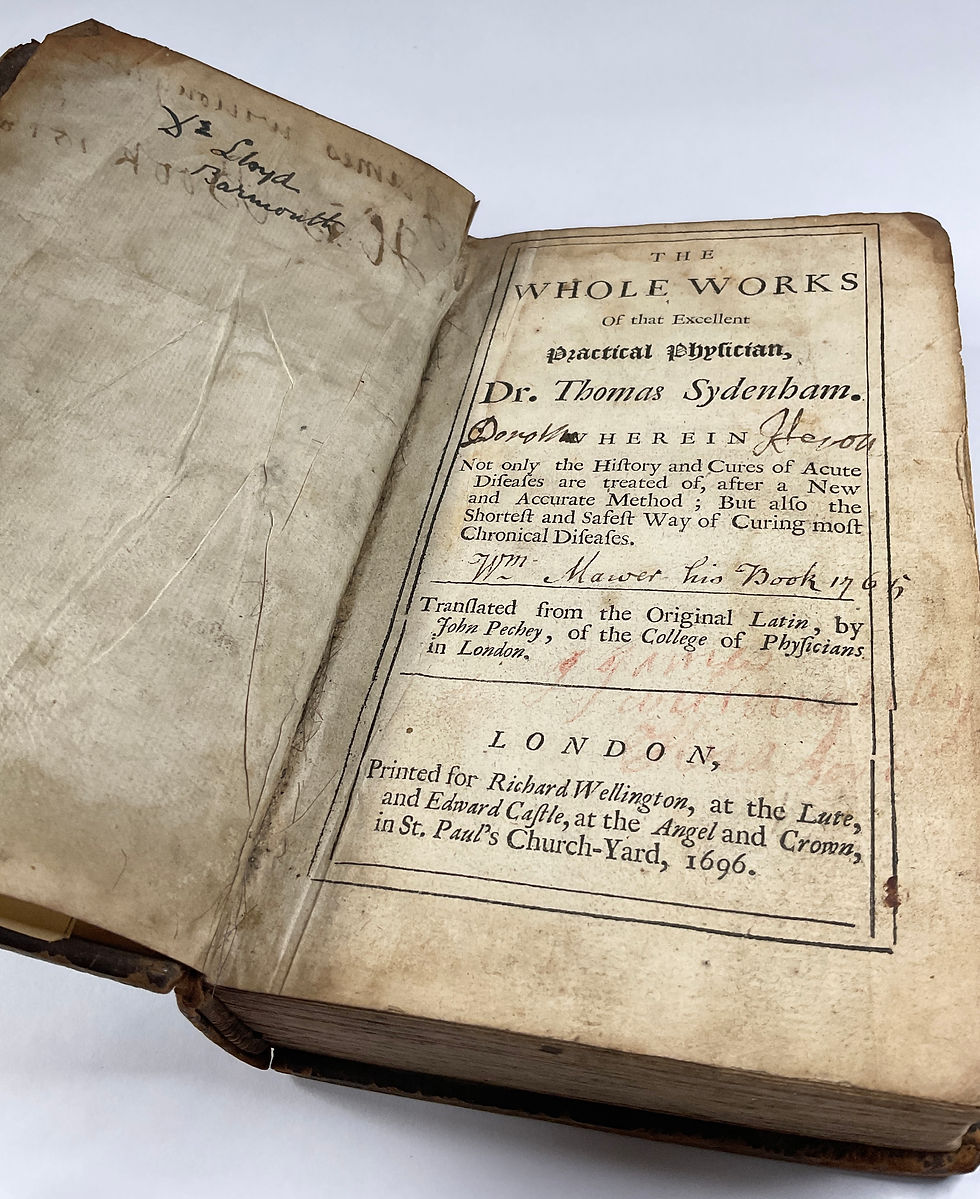 Dr Lloyd
Barmouth
THE
WHOLE WORKS
Of that Excellent
Practical Phyſician,
Dr. Thomas Sydenham.
WHEREIN
Not only the Hiſtory and Cures of Acute
Diſeaſes are treated of, after a New
and Accurate Method ; But alſo the
Shorteſt and Safeſt Way of Curing moſt
Chronical Diſeaſes.
Wm. Mawer his Book 1765
Tranſlated from the Original Latin, by
John Pechey, of the College of Phyſicians
in London.
LONDON,
Printed for Richard Wellington, at the Lute,
and Edward Caſtle, at the Angel and Crown,
in St. Paul's Church-Yard, 1696.